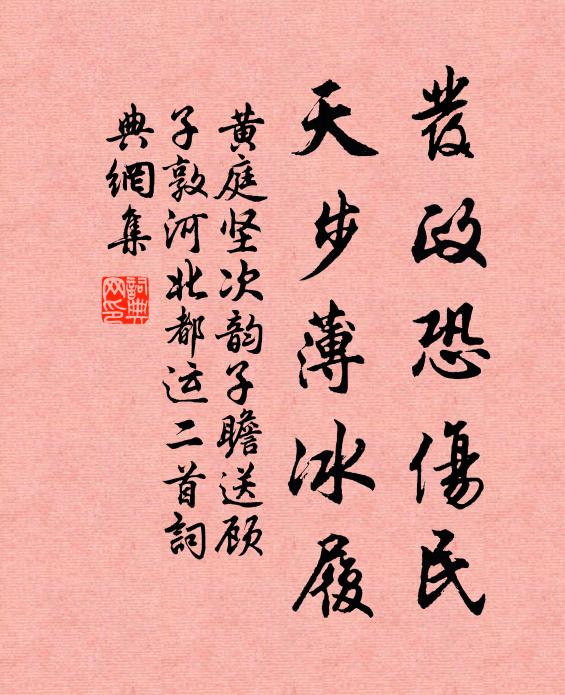 發政恐傷民
天步薄冰履
黄庭坚次韵子瞻送顾
子敦河北都运二首詞
典網集
詞典
网印